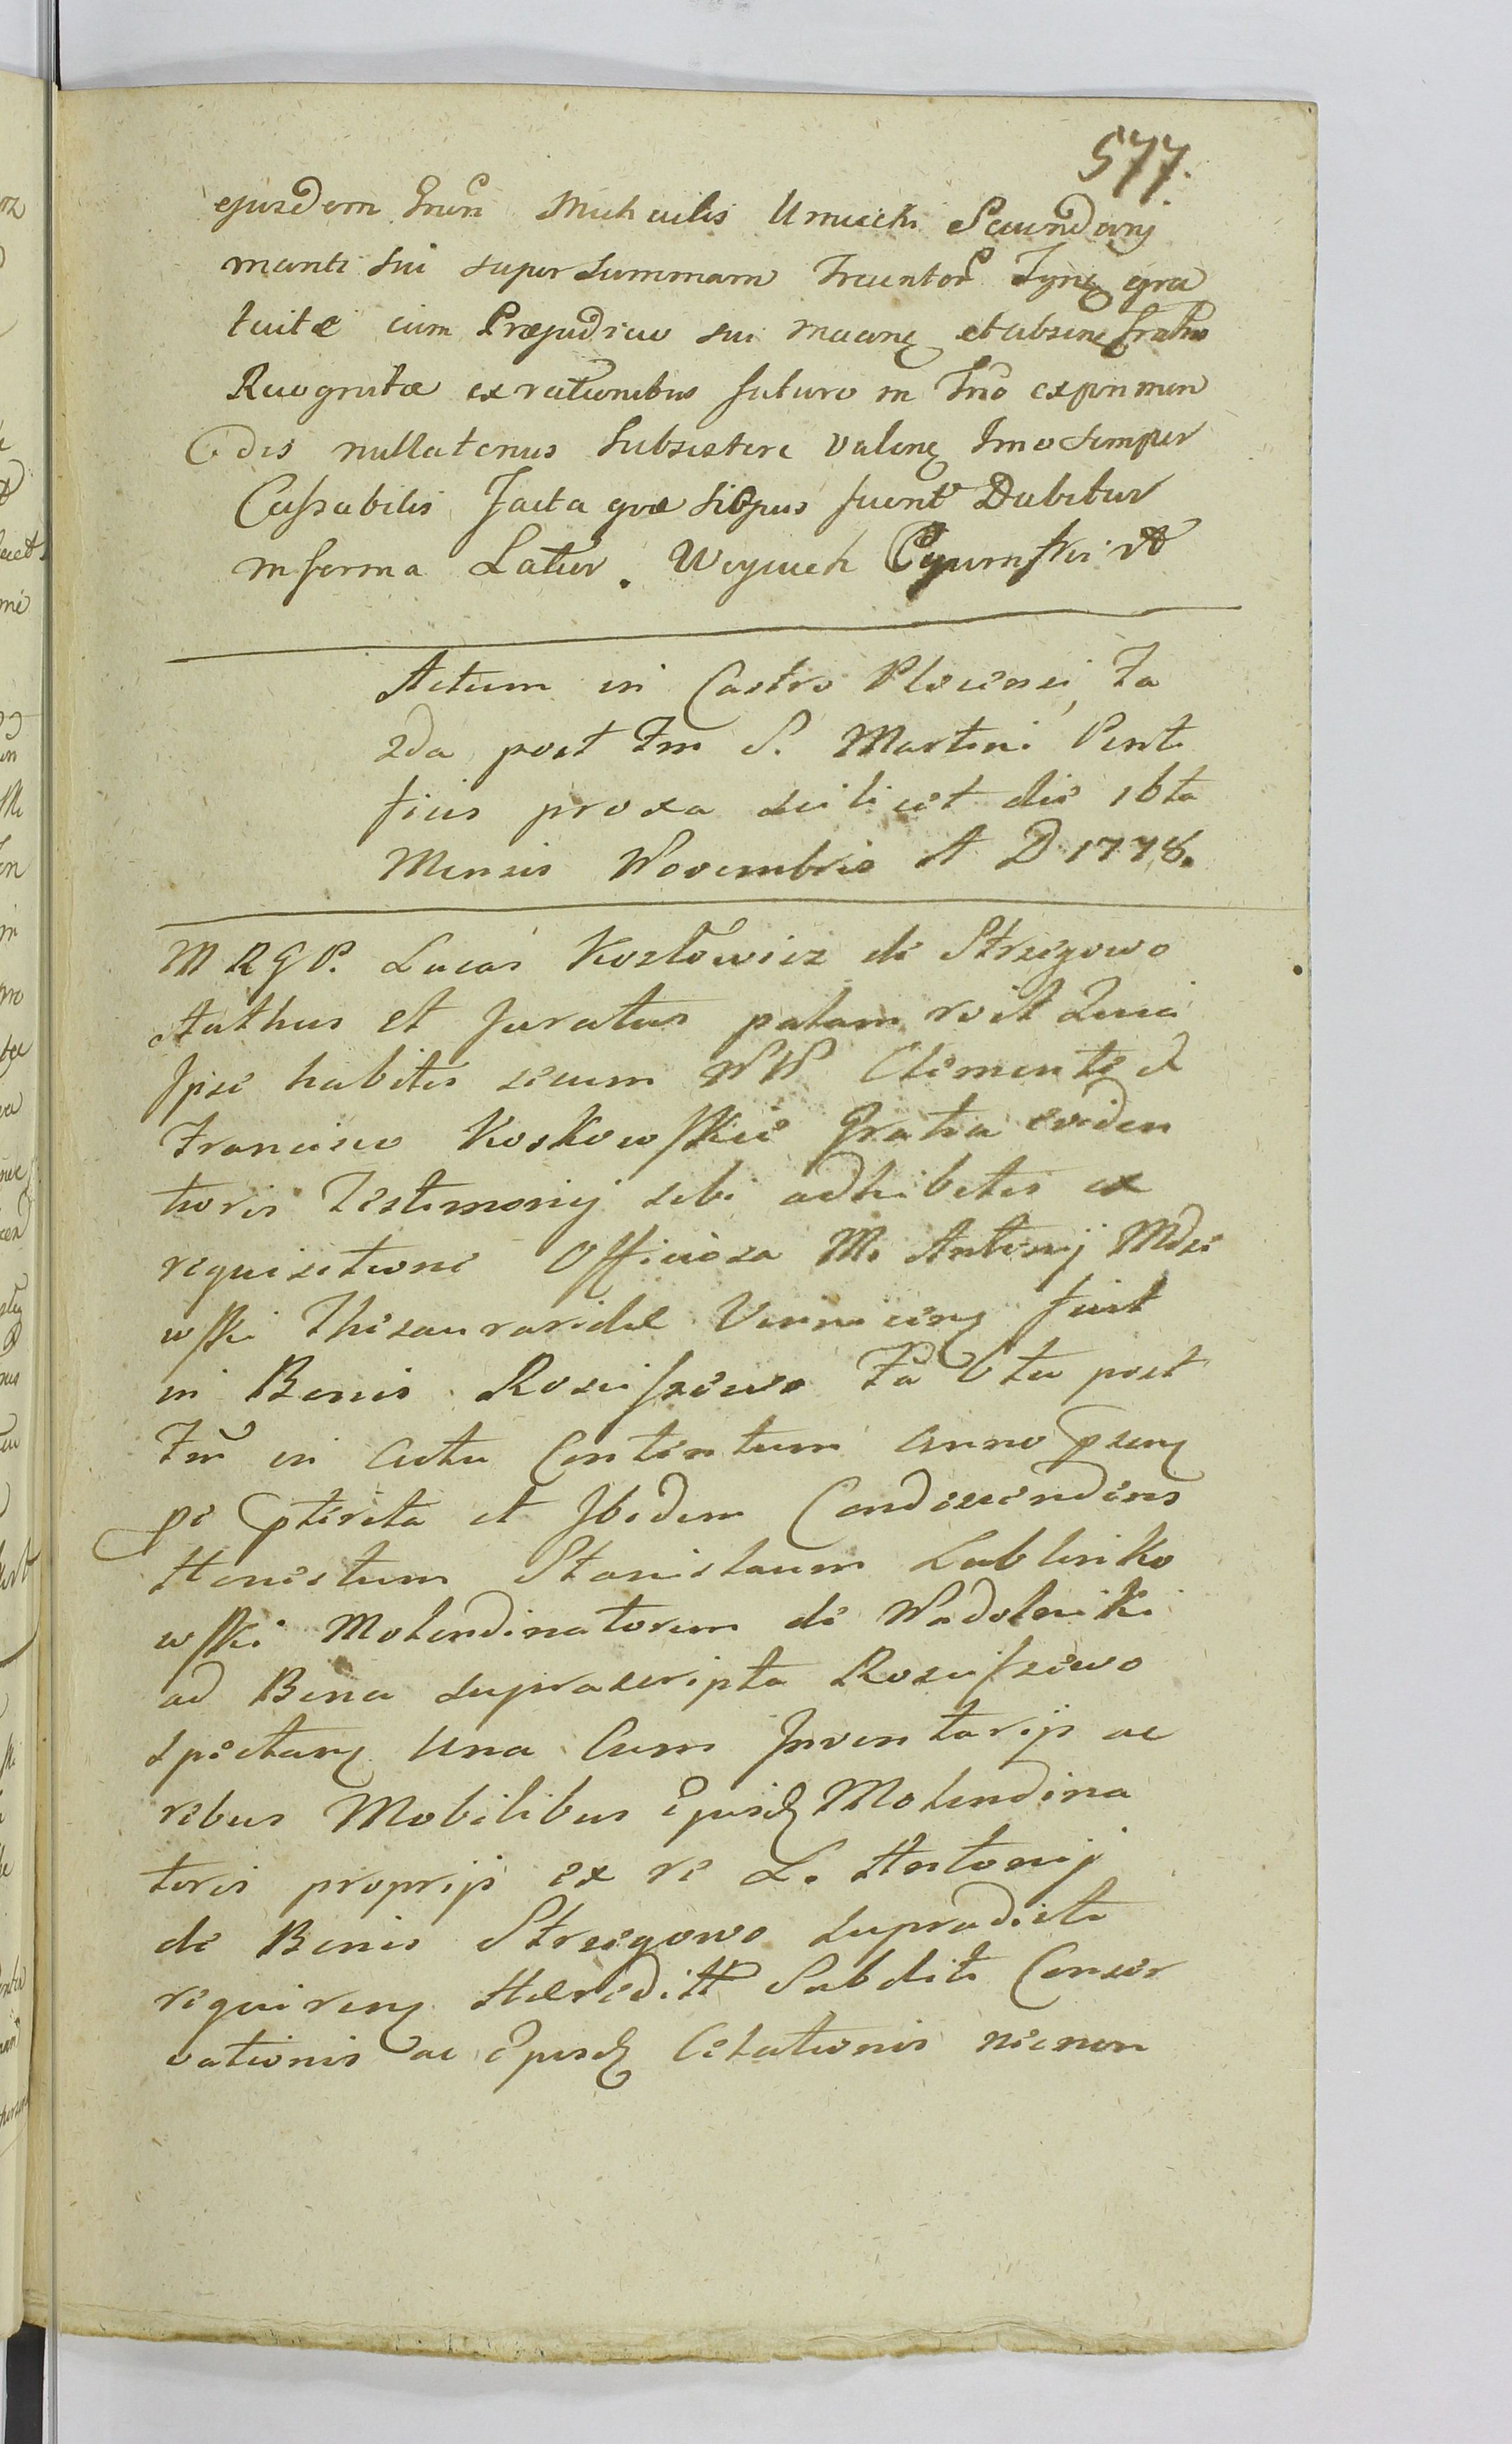 577.
ejusdem Gnen Michaelis Umiecki Secundarij
mariti sui super summam Trecentor Tynf gra
tuitæ cum Præjudicio sui maen et absene fratris
Recognitæ ex rationibus futuro in Tno exprimen
dis nullatenus Subsistere valen Imo Semper
Cassabilis facta quæ siopus fuerit Dabitur
in forma Latior. Woyciech
Actum in Castro Plocensi, Fa
2da post Fm S. Martini Ponti
ficis proxa scilicet die 16ta
Mensis Novembris A D 1778.
M R G P. Lucas Kozłowicz de Strzegowo
Authus et Juratus palam roit Quia
Ipse habitis secum NN Clemente &
Francisco Koskowskie Gratia eviden
tioris Testimonij sibi adhibitis ex
requisitione Officiosa M. Antonij Mdze
wski Thesauraridæ Vennicen fuit
in Bonis Rosciszewo Fa 6ta post
Fm in Actu Contentum Anno psen
pe pterita et Ibidem Condescendens
Honestum Stanislaum Lublinko
wski Molendinatorem de Wadolniki
ad Bona suprascripta Rosciszewo
spectan una Cum Inventarijs ac
rebus Mobilibus Ejusd Molendina
toris proprijs ex re L. Antonij
de Bonis Strzegowo supradicti
requiren Hæreditt Subditi Conser
vationis ac Ejusd Citationis necnon